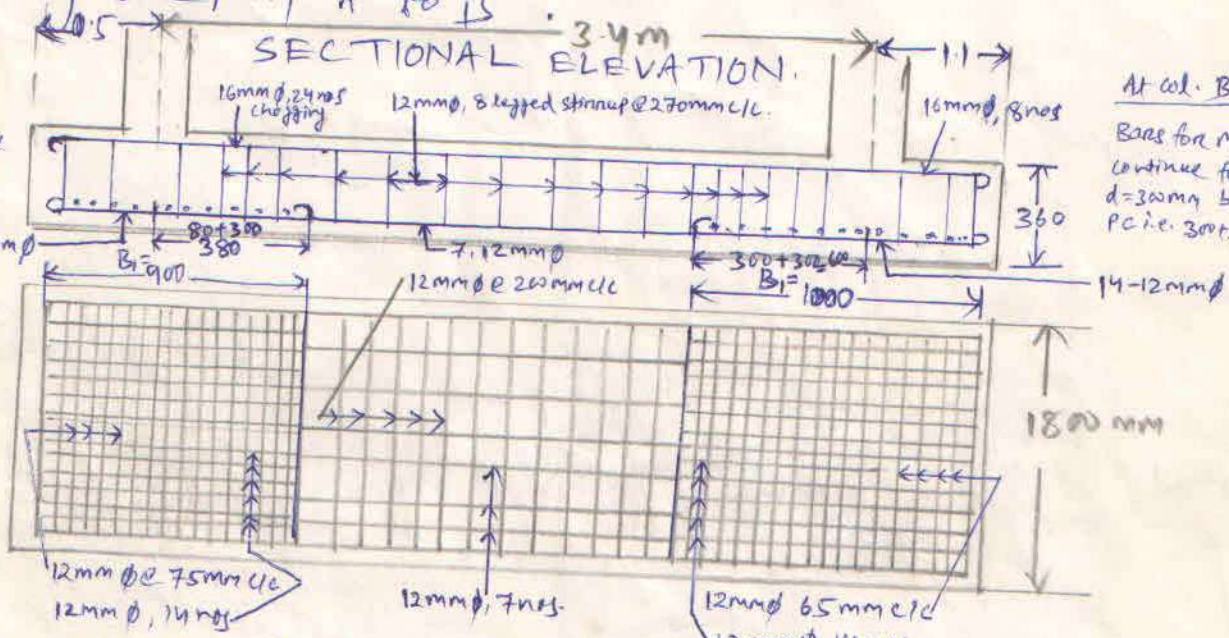 0.5
3.4m
1.1
SECTIONAL ELEVATION.
16mmϕ, 24nos
chogging
12mmϕ, 8 legged stirrup @ 270mm c/c.
16mmϕ, 8nos
At col. B
Bars for
continue
d=300mm
PC i.e. 300+
360
mϕ
80+300
380
7.12mmϕ
300+300=600
B1=900
12mmϕ @ 200mm c/c
B1=1000
14-12mmϕ
1800 mm
12mm ϕ @ 75mm c/c
12mm ϕ, 14 nos
12mmϕ, 7nos.
12mmϕ 65mm c/c